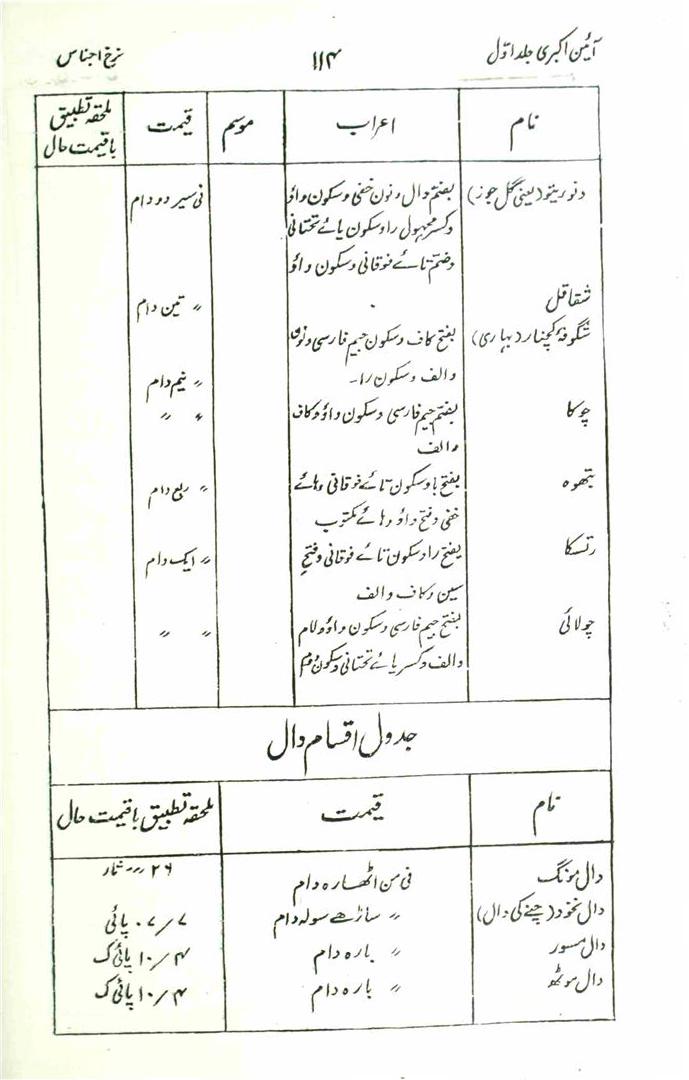 آئین اکبری جلد اوّل ۱۱۴ نرخ اجناس
نام اعراب موسم قیمت ملحقہ تطبیق
باقیمت حال
دنوریتو (یعنی گل جوز) بضمّ دال و نون خفی و سکون واؤ فی سیر دو دام
و کسر مجہول را و سکون یائے تحتانی
و ضمّ تائے فوقانی و سکون واؤ
شقاقل 〃 تین دام
شگوفۂ کچنار (بہاری) بفتح کاف و سکون جیم فارسی و نون
والف و سکون را۔ 〃 نیم دام
چوکا بضم جیم فارسی و سکون واؤ و کاف 〃 〃
والف
بتھوہ بفتح با و سکون تائے فوقانی و ہائے 〃 ربع دام
خفی و فتح واؤ و ہائے مکتوب
رتسکا بفتح را و سکون تائے فوقانی و فتح 〃 ایک دام
سین و کاف والف
چولائی بفتح جیم فارسی و سکون واؤ و لام 〃 〃
والف و کسر یائے تحتانی و سکون
جدول اقسام دال
نام قیمت ملحقہ تطبیق باقیمت حال
دال مونگ فی من اٹھارہ دام ۲۶
دال نخود (چنے کی دال) 〃 ساڑھے سولہ دام ۷/۰۷ پائی
دال مسور 〃 بارہ دام ۴/۱۰ پائی ک
دال موٹھ 〃 بارہ دام ۴/۱۰ پائی ک